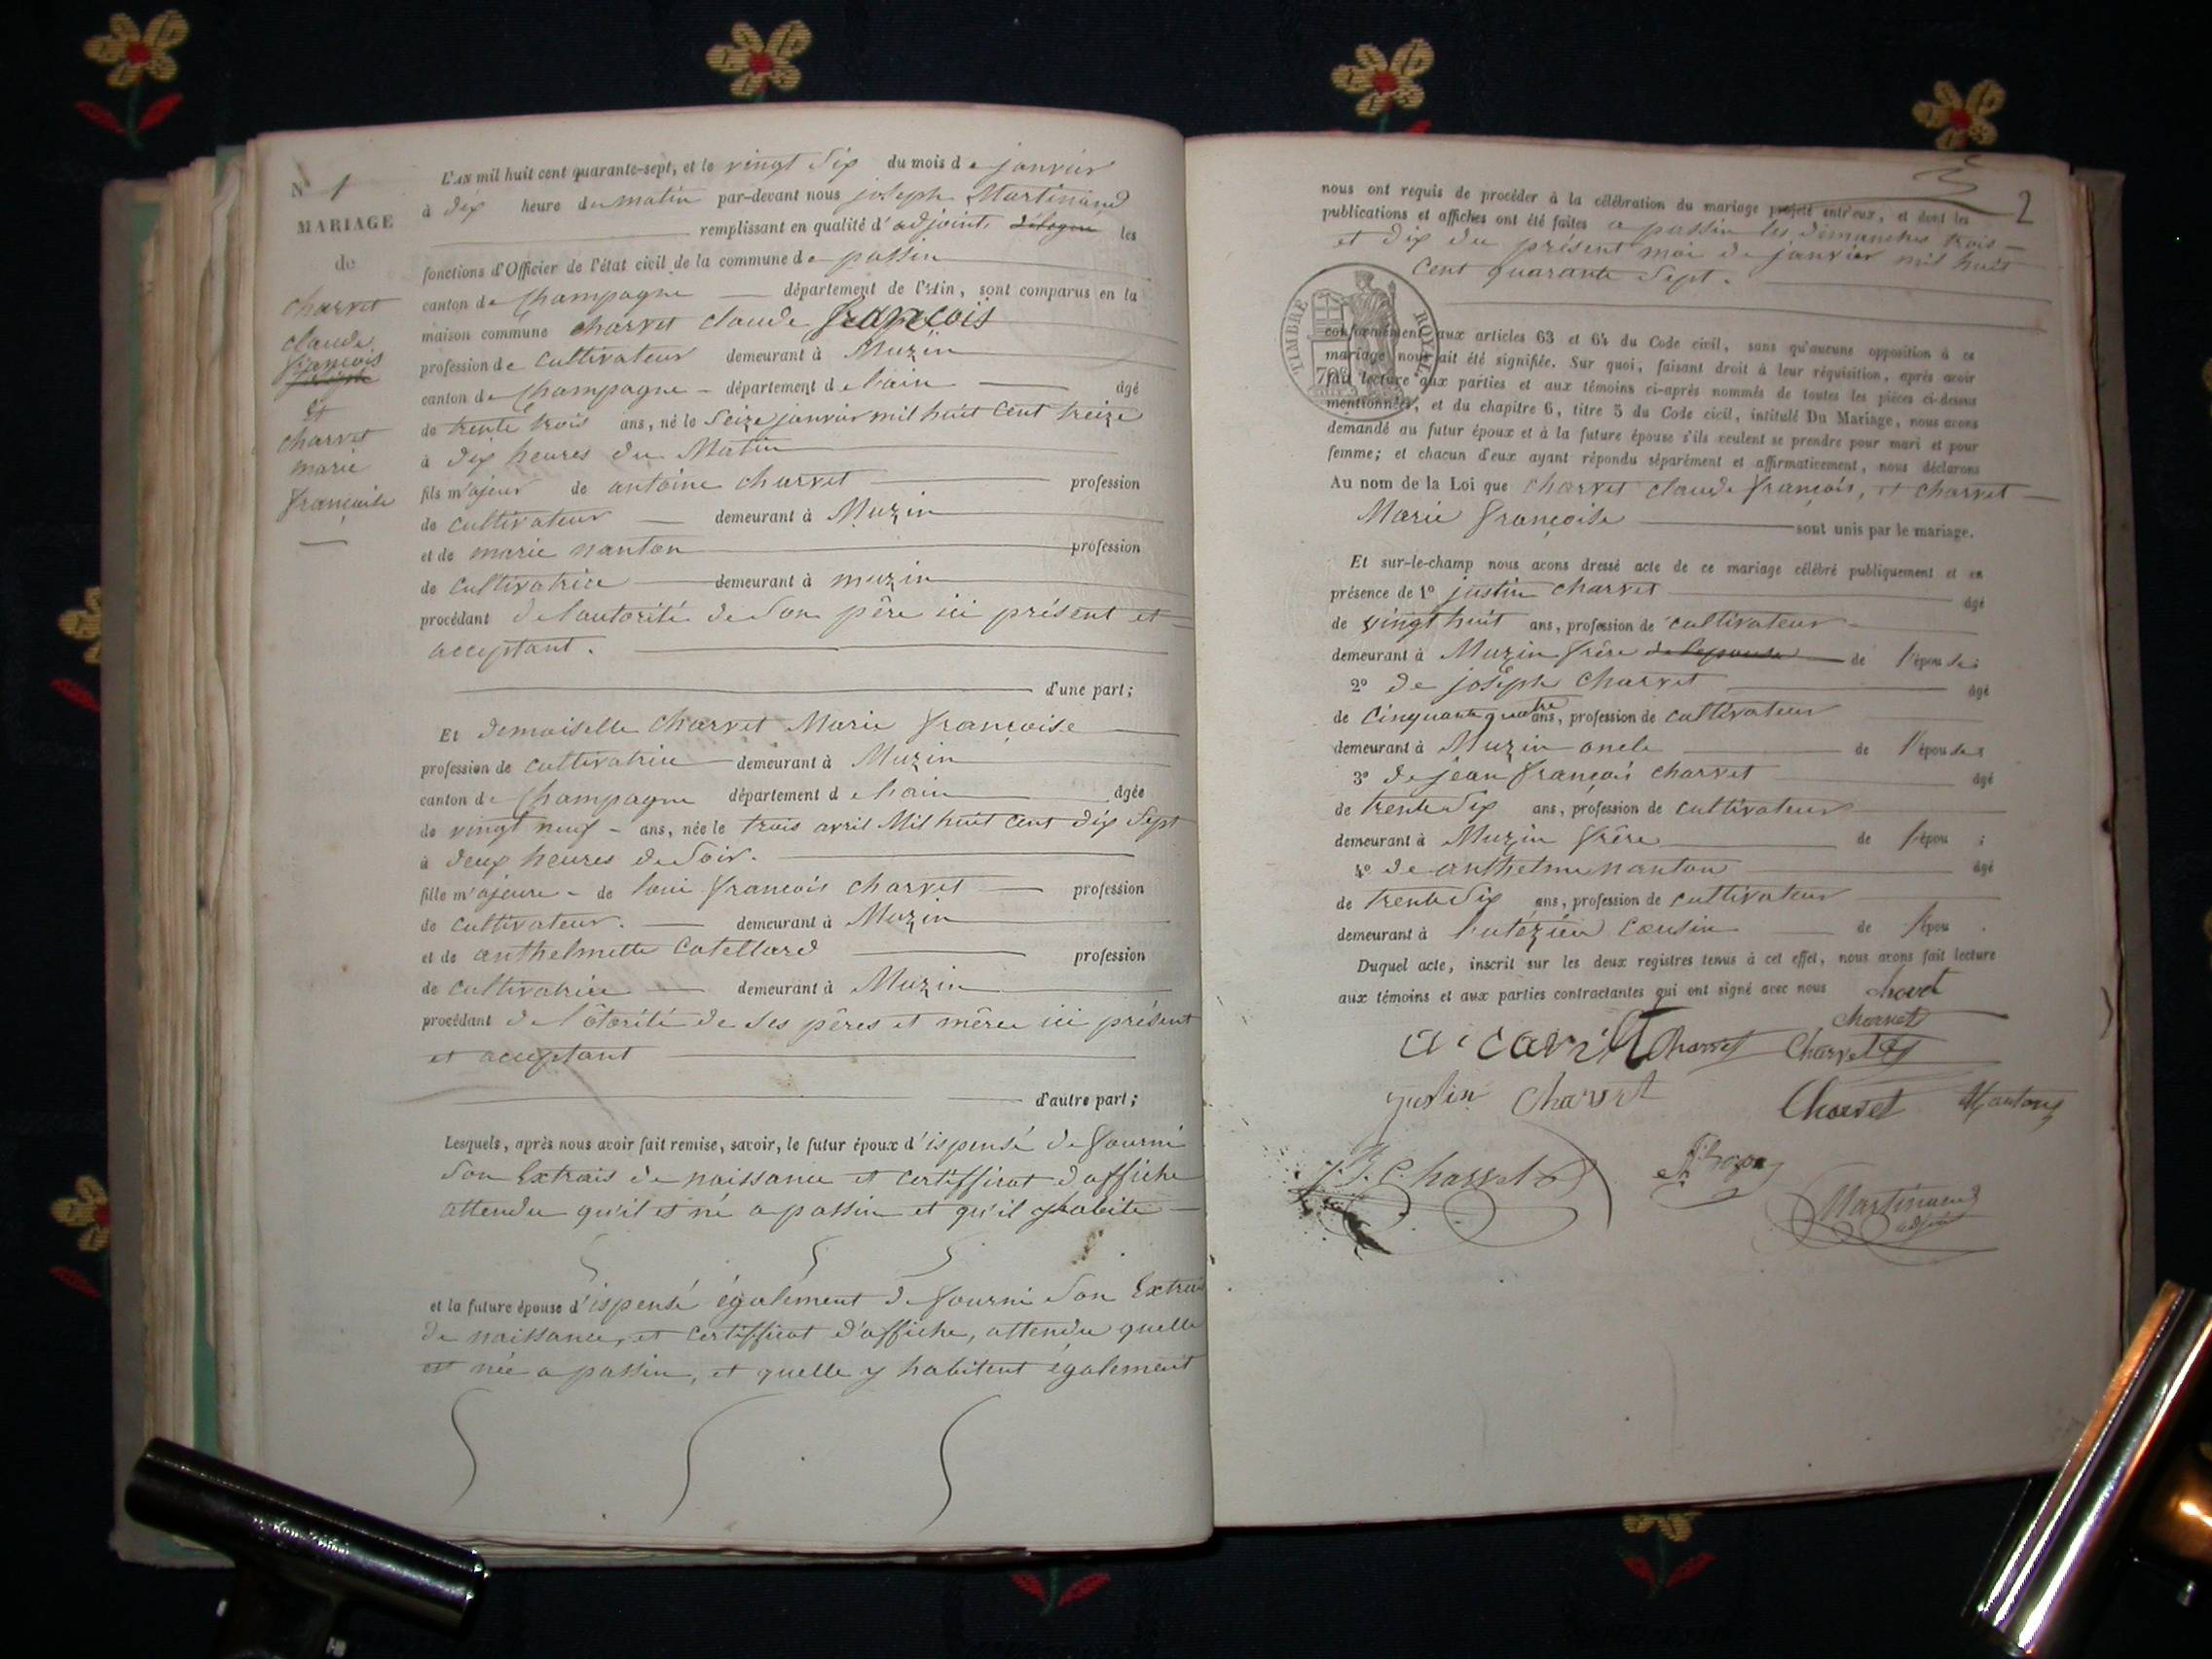 N° 1
MARIAGE
de
charvet
claude
françois
et
charvet
marie
françoise
L'AN mil huit cent quarante-sept, et le vingt six du mois de janvier
à dix heure du matin par-devant nous joseph Martinand
remplissant en qualité d'adjoint, les
fonctions d'Officier de l'état civil de la commune de passin
canton de Champagne département de l'Ain, sont comparus en la
maison commune charvet claude françois
profession de cultivateur demeurant à Muzin
canton de Champagne - département de l'ain âgé
de trente trois ans, né le seize janvier mil huit cent treize
à dix heures du Matin
fils majeur de antoine charvet profession
de cultivateur demeurant à Muzin
et de marie nanton profession
de cultivatrice demeurant à muzin
procédant de l'autorité de son père ici présent et
acceptant.
d'une part;
Et demoiselle charvet Marie françoise
profession de cultivatrice demeurant à Muzin
canton de Champagne département de l'ain âgée
de vingt neuf - ans, née le trois avril Mil huit cent dix sept
à deux heures de soir.
fille m'ajeure - de loui françois charvet profession
de cultivateur. demeurant à Muzin
et de anthelmette Catellard profession
de cultivatrice demeurant à Muzin
procédant de l'otorité de ses pères et mères ici présent
et acceptant
d'autre part;
Lesquels, après nous avoir fait remise, savoir, le futur époux d'ispensé de fourni
son Extrais de naissance et certifficat d'affiche
attendu qu'il est né a passin et qu'il y habite
et la future épouse d'ispensé également de fourni son Extrais
de naissance, et certifficat d'affiche, attendu quelle
est née a passin, et quelle y habitent également
2
nous ont requis de procéder à la célébration du mariage projeté entr'eux, et dont les
publications et affiches ont été faites a passin les dimanches trois
et dix du présent moi de janvier mil huit
cent quarante sept.
TIMBRE ROYAL
conformément aux articles 63 et 64 du Code civil, sans qu'aucune opposition à ce
mariage nous ait été signifiée. Sur quoi, faisant droit à leur réquisition, après avoir
fait lecture aux parties et aux témoins ci-après nommés de toutes les pièces ci-dessus
mentionnées, et du chapitre 6, titre 5 du Code civil, intitulé Du Mariage, nous avons
demandé au futur époux et à la future épouse s'ils veulent se prendre pour mari et pour
femme; et chacun d'eux ayant répondu séparément et affirmativement, nous déclarons
Au nom de la Loi que charvet claude françois, et charvet
Marie françoise sont unis par le mariage.
Et sur-le-champ nous avons dressé acte de ce mariage célébré publiquement et en
présence de 1° justin charvet âgé
de vingt huit ans, profession de cultivateur
demeurant à Muzin frère de l'epouse de l'épouse;
2° de joseph charvet âgé
de cinquante quatre ans, profession de cultivateur
demeurant à Muzin oncle de l'épouse;
3° de jean françois charvet âgé
de trente six ans, profession de cultivateur
demeurant à Muzin frère de l'épou ;
4° de anthelme nanton âgé
de trente six ans, profession de cultivateur
demeurant à cousin de l'épou .
Duquel acte, inscrit sur les deux registres tenus à cet effet, nous avons fait lecture
aux témoins et aux parties contractantes qui ont signé avec nous
charvet
Charvet Charvet
justin Charvet Charvet Nanton
J. F. Charvet
Martinand
adjoint